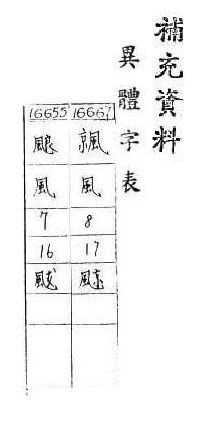 補充資料
異體字表
16655 16667
風 風
7 8
16 17